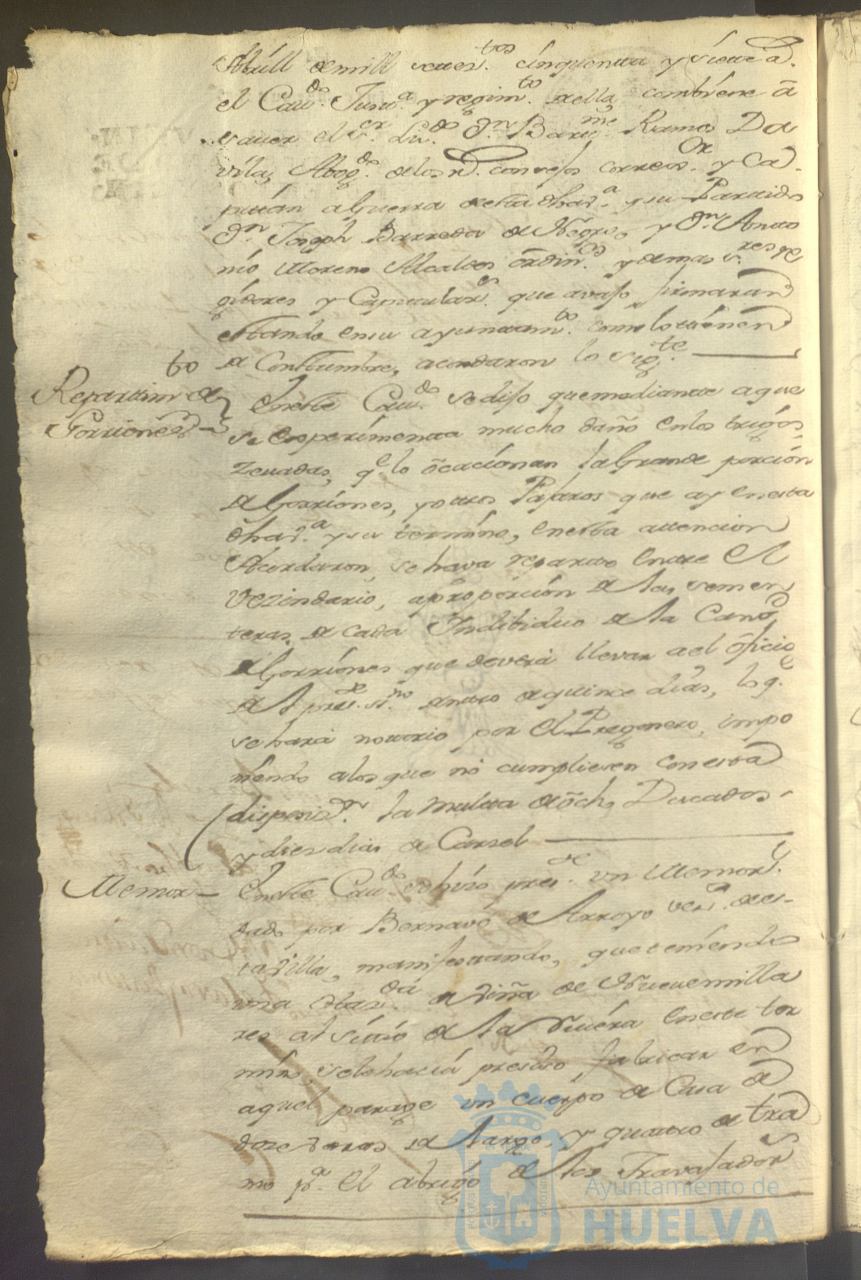 Abrill de mill setes.tos cinquenta y siete a.
el Cav.do Just.a y regim.to de ella combiene a
saver el s.r Lic.do D.n Bar.me Ramos Da
vila, Abog.do de los R.s consejos correg.or y Ca
pitan a Guerra desta dha v.a y su Partido
D.n Joseph Barreda de Negro, y D.n Anto
nio Moreno Alcaldes ordin.os y demas s.res Re
gidores y Capitular.s que avajo firmaran
estando en su ayuntam.to como lo tienen
de Constumbre, acordaron lo sig.te
Repartim.to de
Gorriones
En este Cav.do se dijo que mediante a que
se experimenta mucho daño en los trigos
Zevadas, q.e lo ocacionan la Grande porcion
de Gorriones, y otros Pajaros que ay en esta
dha v.a y su termino, en esta attencion
Acordaron, se haga reparto entre el
Vezindario, a proporcion de las semen
teras de cada Individuo de la Cant.d
de Gorriones que devera llevar a el oficio
del pres.te ss.no dentro de quince dias, lo q.e
se hara notorio por el Pregonero, impo
niendo a los que no cumpliesen con esta
disposiz.n la Multa de ocho Ducados
y diez dias de Carsel
Memor.l
En este Cav.do se hizo pres.te un Memor.l
dado por Bernave de Arroyo vez.o de es
ta Villa, manifestando, que teniendo
una de Viña de Nuevemilla
res al sitio de la Rivera en este ter
mino, se le hacia presiso fabricar en
aquel parage un cuerpo de Casa de
doze varas de Largo, y quatro de tra
mo p.a el abrigo de los Travajador.s
Ayuntamiento de
HUELVA